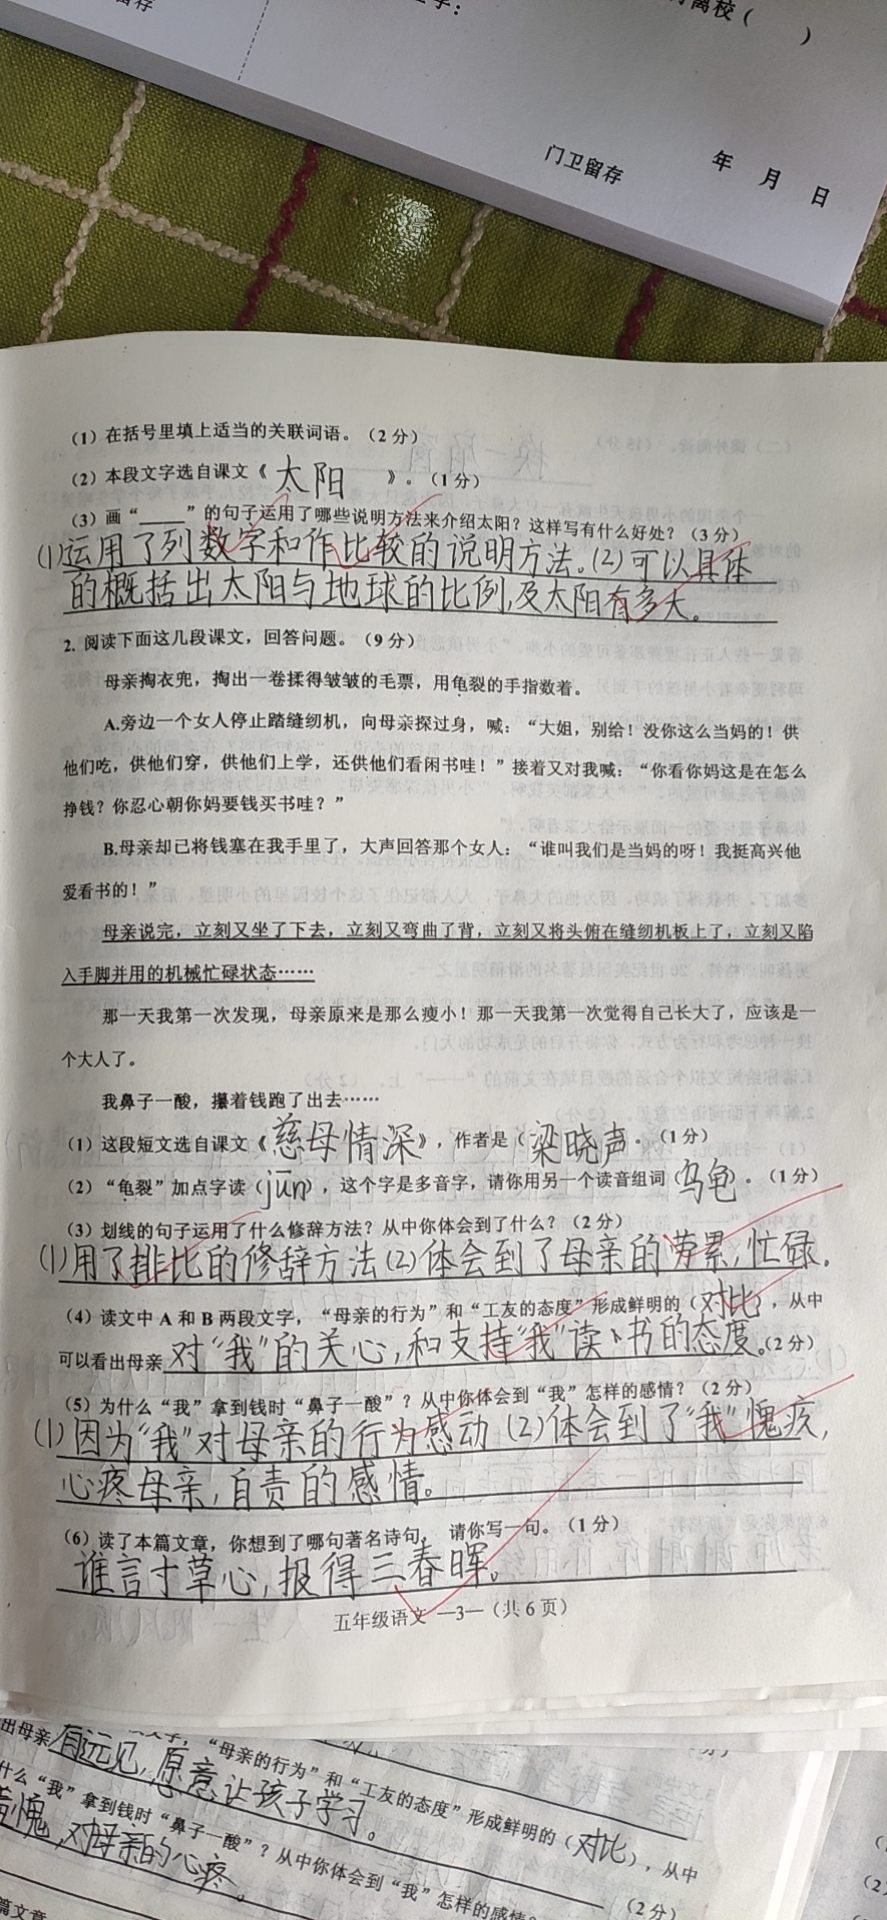 留存
离校（    ）
门卫留存    年  月  日
（1）在括号里填上适当的关联词语。（2分）
（2）本段文字选自课文《太阳》。（1分）
（3）画“____”的句子运用了哪些说明方法来介绍太阳？这样写有什么好处？（3分）
(1)运用了列数字和作比较的说明方法。(2)可以具体
的概括出太阳与地球的比例,及太阳有多大。
2. 阅读下面这几段课文，回答问题。（9分）
母亲掏衣兜，掏出一卷揉得皱皱的毛票，用龟裂的手指数着。
A.旁边一个女人停止踏缝纫机，向母亲探过身，喊：“大姐，别给！没你这么当妈的！供
他们吃，供他们穿，供他们上学，还供他们看闲书哇！”接着又对我喊：“你看你妈这是在怎么
挣钱？你忍心朝你妈要钱买书哇？”
B.母亲却已将钱塞在我手里了，大声回答那个女人：“谁叫我们是当妈的呀！我挺高兴他
爱看书的！”
母亲说完，立刻又坐了下去，立刻又弯曲了背，立刻又将头俯在缝纫机板上了，立刻又陷
入手脚并用的机械忙碌状态……
那一天我第一次发现，母亲原来是那么瘦小！那一天我第一次觉得自己长大了，应该是一
个大人了。
我鼻子一酸，攥着钱跑了出去……
（1）这段短文选自课文《慈母情深》，作者是（梁晓声。（1分）
（2）“龟裂”加点字读（jūn），这个字是多音字，请你用另一个读音组词（乌龟）。（1分）
（3）划线的句子运用了什么修辞方法？从中你体会到了什么？（2分）
(1)用了排比的修辞方法(2)体会到了母亲的劳累,忙碌。
（4）读文中A和B两段文字，“母亲的行为”和“工友的态度”形成鲜明的（对比），从中
可以看出母亲对“我”的关心,和支持“我”读书的态度。（2分）
（5）为什么“我”拿到钱时“鼻子一酸”？从中你体会到“我”怎样的感情？（2分）
(1)因为“我”对母亲的行为感动 (2)体会到了“我”愧疚,
心疼母亲,自责的感情。
（6）读了本篇文章，你想到了哪句著名诗句，请你写一句。（1分）
谁言寸草心,报得三春晖。
五年级语文 —3—（共6页）
“母亲的行为”和“工友的态度”形成鲜明的（对比），从中
出母亲有远见,愿意让孩子学习。（2分）
什么“我”拿到钱时“鼻子一酸”？从中你体会到“我”怎样的感情？
愧,对母亲的心疼。
篇文章